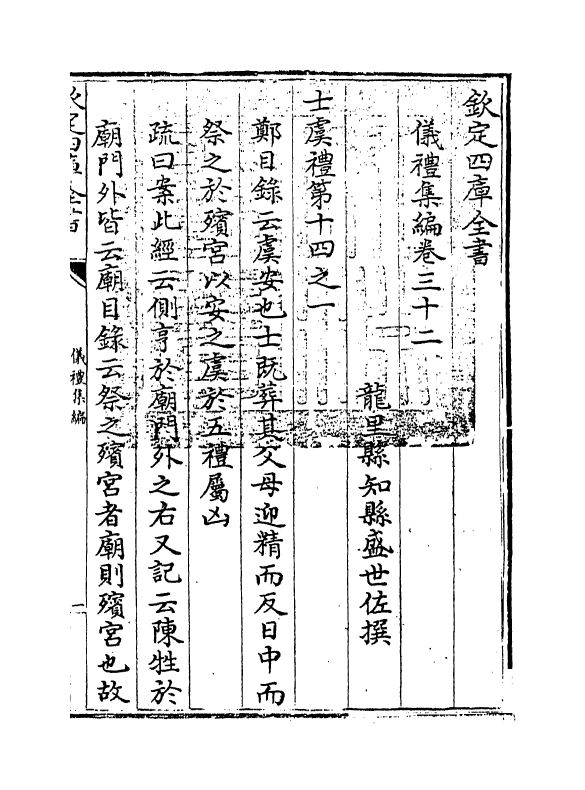 欽定四庫全書
儀禮集編卷三十二
龍里縣知縣盛世佐撰
士虞禮第十四之一
鄭目錄云虞安也士既葬其父母迎精而反日中而
祭之於殯宮以安之虞於五禮屬凶
疏曰案此經云側亨於廟門外之右又記云陳牲於
廟門外皆云廟目錄云祭之殯宮者廟則殯宮也故
欽定四庫全書
儀禮集編
一